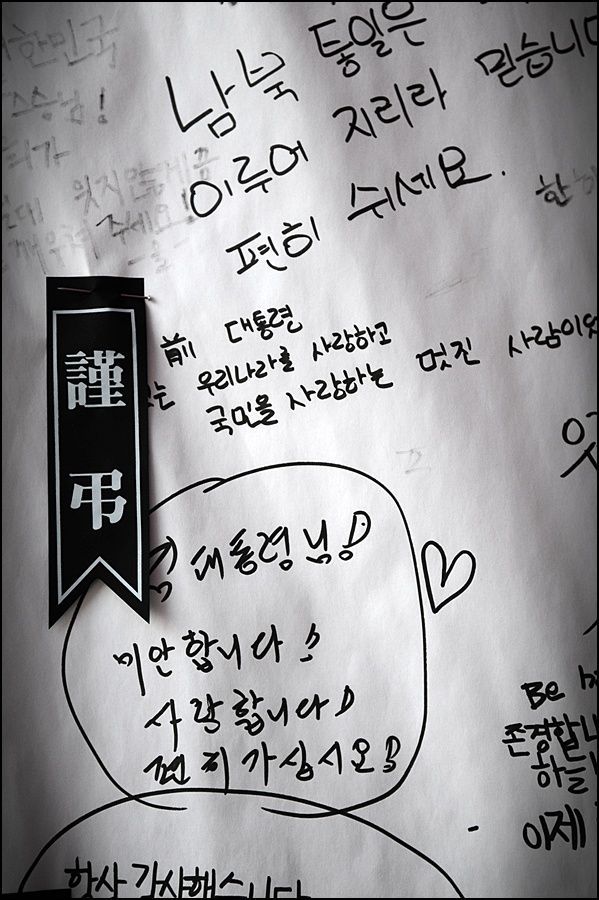 대한민국
스승님!
남북 통일은
이루어 지리라 믿습니다
편히 쉬세요.
잊지않게끔
주세요!
謹弔
前 대통령
는 우리나라를 사랑하고
국민을 사랑하는 멋진 사람이었
대통령님!
미안합니다!
사랑합니다!
편히 가십시오!
Be
존경합니
하늘
이제
항상 감사했습니다